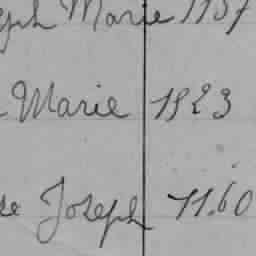 eph Marie 1157
Marie 1823
se Joseph 11.60